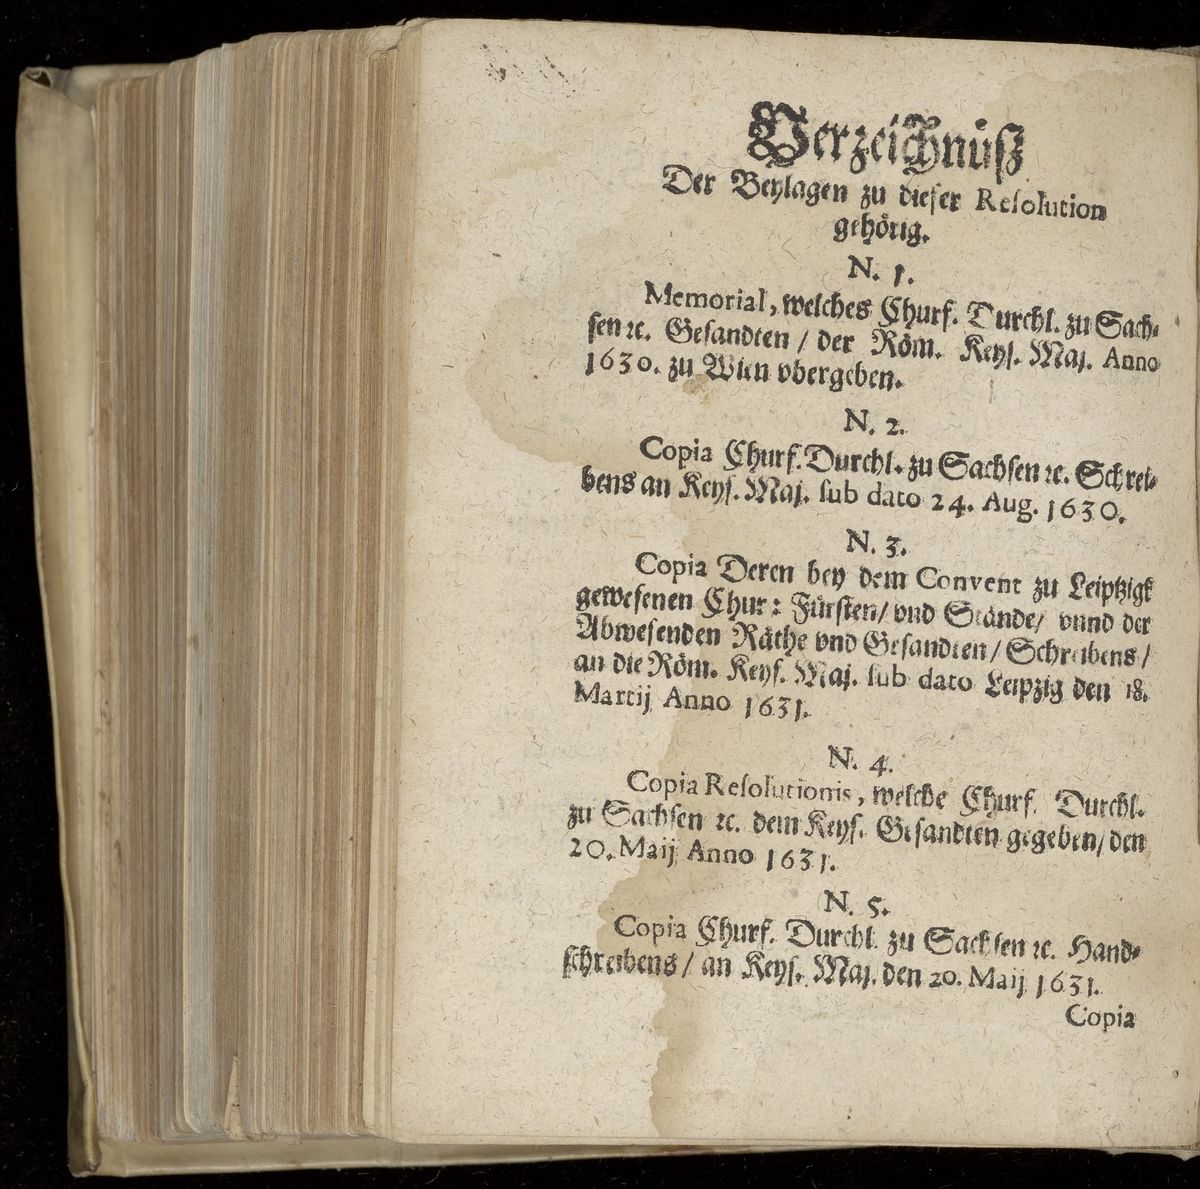 Verzeichnüß
Der Beylagen zu dieser Resolution
gehörig.
N. 1.
Memorial, welches Churf. Durchl. zu Sach-
sen ꝛc. Gesandten / der Röm. Keys. Maj. Anno
1630. zu Wien vbergeben.
N. 2.
Copia Churf. Durchl. zu Sachsen ꝛc. Schrei-
bens an Keys. Maj. sub dato 24. Aug. 1630.
N. 3.
Copia Deren bey dem Convent zu Leiptzigk
gewesenen Chur: Fürsten/ vnd Stände/ vnnd der
Abwesenden Räthe vnd Gesandten/ Schreibens/
an die Röm. Keys. Maj. sub dato Leipzig den 18.
Martij Anno 1631.
N. 4.
Copia Resolutionis, welche Churf. Durchl.
zu Sachsen ꝛc. dem Keys. Gesandten gegeben/ den
20. Maij Anno 1631.
N. 5.
Copia Churf. Durchl. zu Sachsen ꝛc. Hand-
schreibens/ an Keys. Maj. den 20. Maij 1631.
Copia